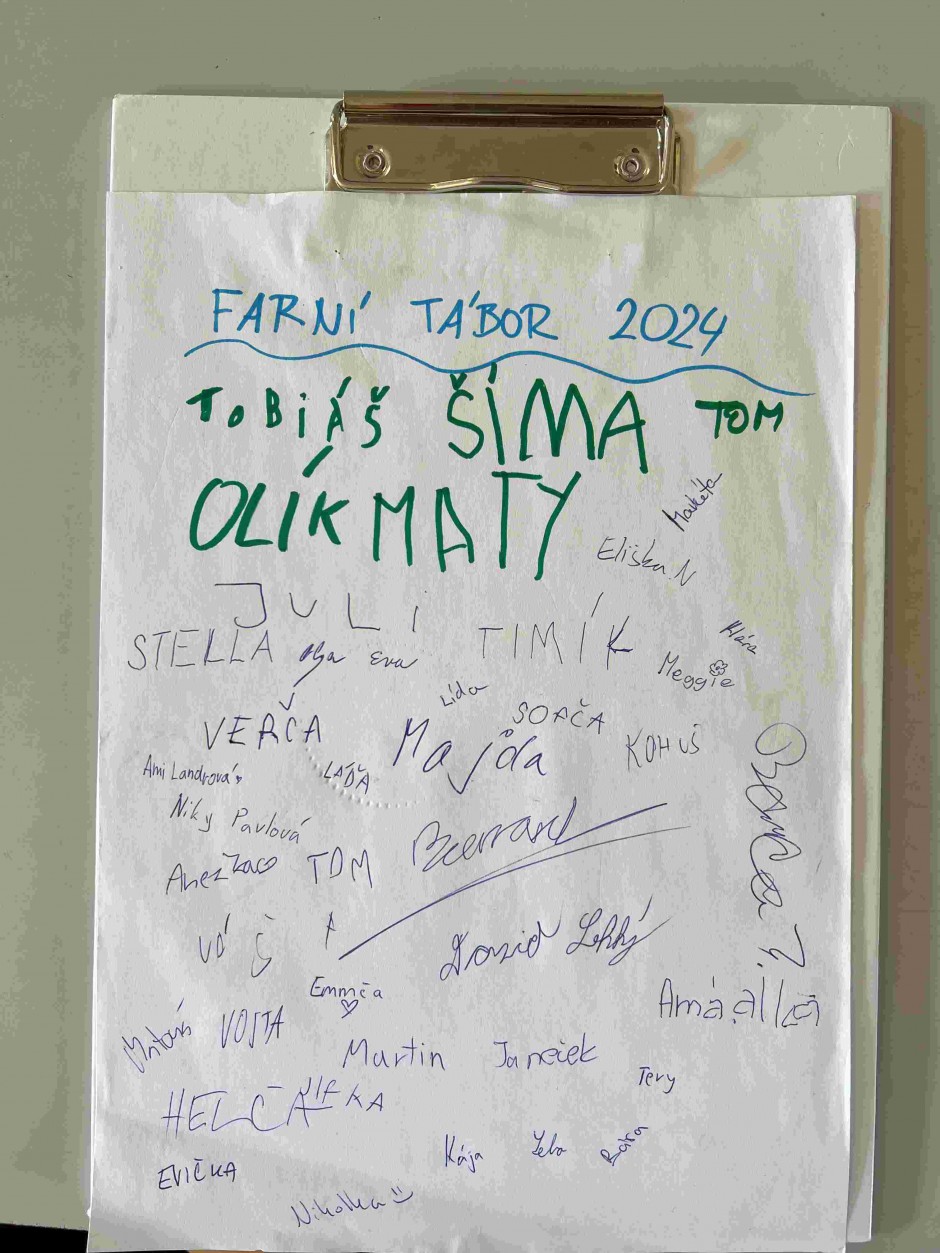 FARNÍ TÁBOR 2024
TOBIÁŠ ŠÍMA TOM
OLÍK MATY
Markéta
Eliška N
JULI
STELLA Olga Eva TIMÍK Klára
Meggie
Lída
VERČA Majda SOFČA KOHUŠ
Ami Landrová
LÁĎA
Niky Pavlová
Anežka TOM Bernard
David Lehký
Emmča
Amálka
Matouš VOJTA
Martin Janeček
Tery
HELČA JIŘKA
Kája Bára
EVIČKA
Nikolka